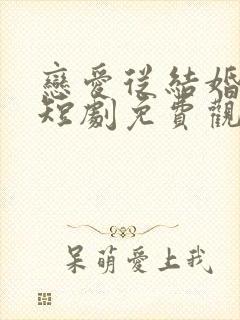 戀愛從結婚
短劇免費觀
呆萌愛上我